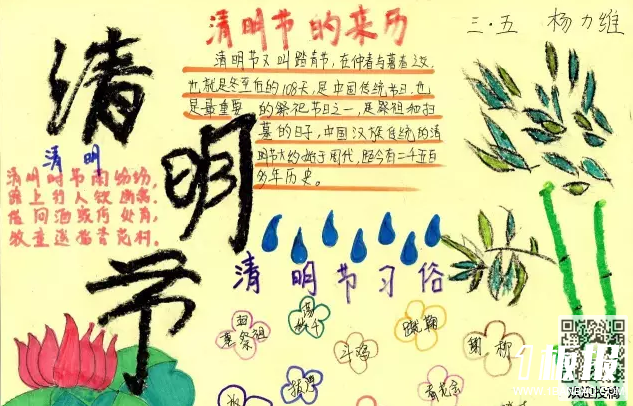 清明节的来历
三·五 杨力维
清明节又叫踏青节,在仲春与暮春之交,
也就是冬至后的108天,是中国传统节日,也
是最重要的祭祀节日之一,是祭祖和扫
墓的日子,中国汉族传统的清
明节大约始于周代,距今有二千五百
多年历史。
清明节
清明
清明时节雨纷纷,
路上行人欲断魂。
借问酒家何处有,
牧童遥指杏花村。
清明节习俗
祭祖
荡秋千
斗鸡
蹴鞠
柳
拔河